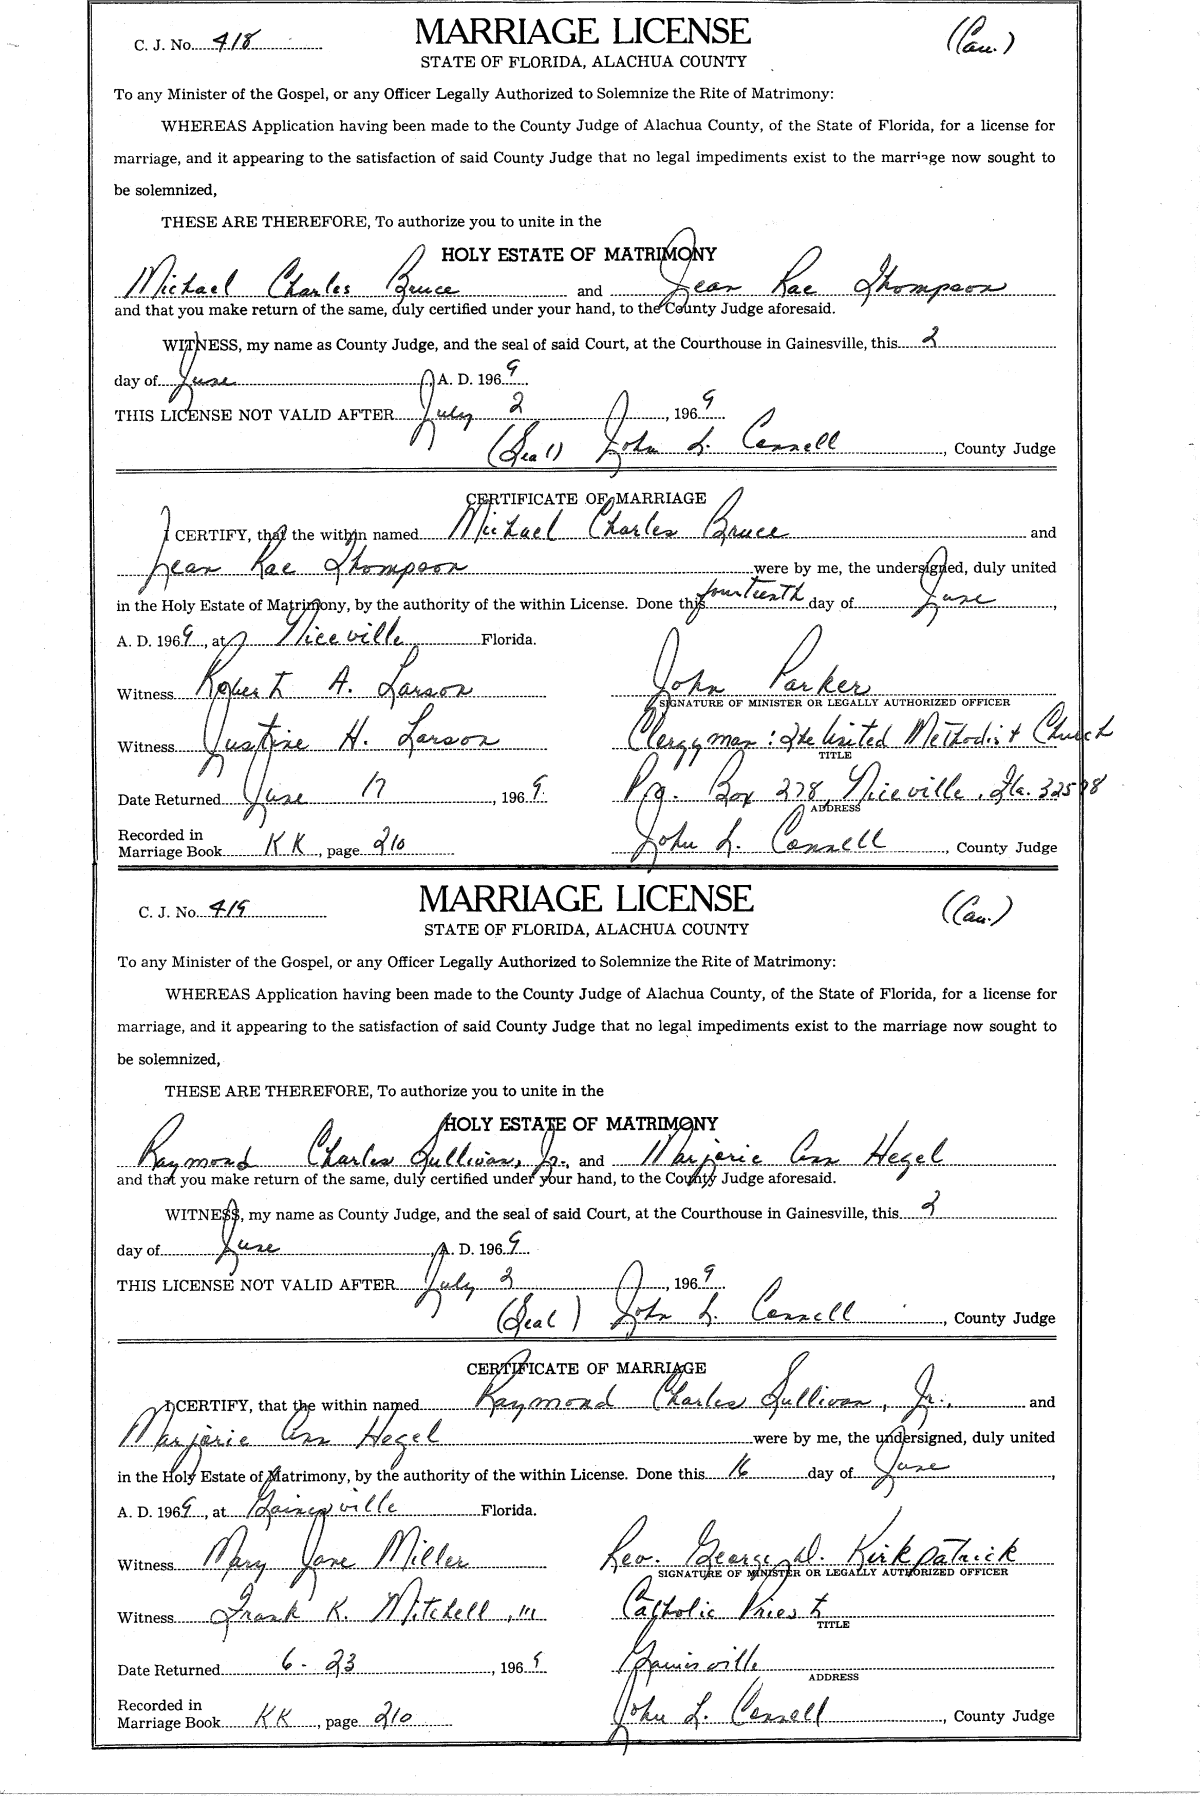 C. J. No. 418
MARRIAGE LICENSE
(Cau.)
STATE OF FLORIDA, ALACHUA COUNTY
To any Minister of the Gospel, or any Officer Legally Authorized to Solemnize the Rite of Matrimony:
WHEREAS Application having been made to the County Judge of Alachua County, of the State of Florida, for a license for
marriage, and it appearing to the satisfaction of said County Judge that no legal impediments exist to the marriage now sought to
be solemnized,
THESE ARE THEREFORE, To authorize you to unite in the
HOLY ESTATE OF MATRIMONY
Michael Charles Bruce and Jean Rae Thompson
and that you make return of the same, duly certified under your hand, to the County Judge aforesaid.
WITNESS, my name as County Judge, and the seal of said Court, at the Courthouse in Gainesville, this 2
day of June A. D. 1969
THIS LICENSE NOT VALID AFTER July 2, 1969
(Seal) John L. Connell, County Judge
CERTIFICATE OF MARRIAGE
I CERTIFY, that the within named Michael Charles Bruce and
Jean Rae Thompson were by me, the undersigned, duly united
in the Holy Estate of Matrimony, by the authority of the within License. Done this fourteenth day of June,
A. D. 1969, at Niceville Florida.
Witness Robert A. Larson John Parker
SIGNATURE OF MINISTER OR LEGALLY AUTHORIZED OFFICER
Witness Justine H. Larson Clergyman: The United Methodist Church
TITLE
Date Returned June 17, 1969 P.O. Box 278, Niceville, Fla. 32578
ADDRESS
Recorded in
Marriage Book KK, page 210 John L. Connell, County Judge
C. J. No. 419
MARRIAGE LICENSE
(Cau.)
STATE OF FLORIDA, ALACHUA COUNTY
To any Minister of the Gospel, or any Officer Legally Authorized to Solemnize the Rite of Matrimony:
WHEREAS Application having been made to the County Judge of Alachua County, of the State of Florida, for a license for
marriage, and it appearing to the satisfaction of said County Judge that no legal impediments exist to the marriage now sought to
be solemnized,
THESE ARE THEREFORE, To authorize you to unite in the
HOLY ESTATE OF MATRIMONY
Raymond Charles Sullivan, Jr., and Marjorie Ann Hegel
and that you make return of the same, duly certified under your hand, to the County Judge aforesaid.
WITNESS, my name as County Judge, and the seal of said Court, at the Courthouse in Gainesville, this 2
day of June, A. D. 1969
THIS LICENSE NOT VALID AFTER July 2, 1969
(Seal) John L. Connell, County Judge
CERTIFICATE OF MARRIAGE
I CERTIFY, that the within named Raymond Charles Sullivan, Jr., and
Marjorie Ann Hegel were by me, the undersigned, duly united
in the Holy Estate of Matrimony, by the authority of the within License. Done this 16 day of June,
A. D. 1969, at Gainesville Florida.
Witness Mary Jane Miller Rev. George W. Kirkpatrick
SIGNATURE OF MINISTER OR LEGALLY AUTHORIZED OFFICER
Witness Frank K. Mitchell, III Catholic Priest
TITLE
Date Returned 6-23, 1969 Gainesville
ADDRESS
Recorded in
Marriage Book KK, page 210 John L. Connell, County Judge